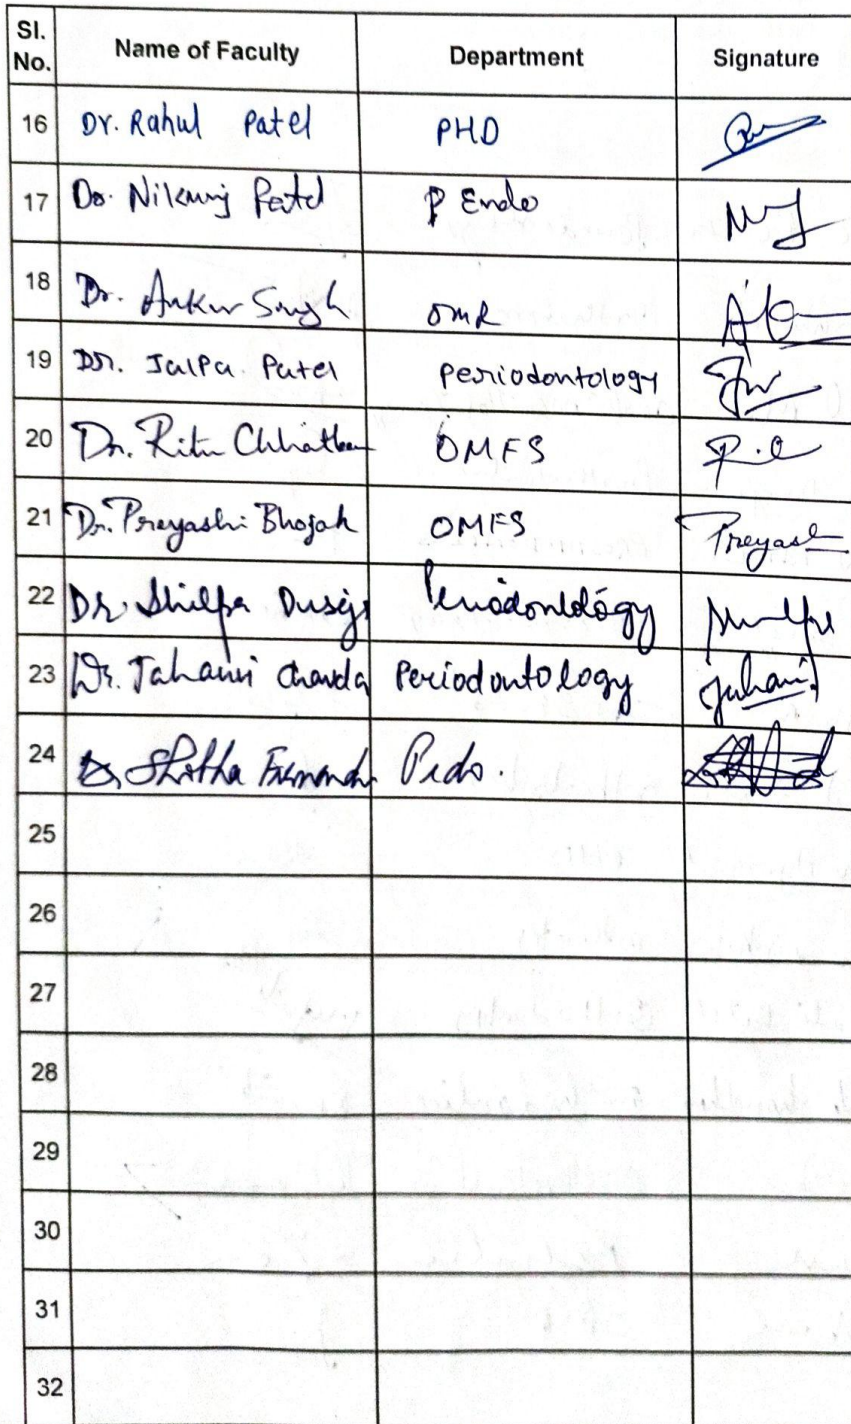 Sl. No. Name of Faculty Department Signature
16 Dr. Rahul Patel PHD
17 Dr. Nikunj Patel Endo
18 Dr. Ankur Singh OMR
19 Dr. Jalpa Patel Periodontology
20 Dr. Ritu OMFS
21 Dr. Preyashi Bhojak OMFS Preyash
22 Dr. Shilpa Periodontology
23 Dr. Jahanvi Chavda Periodontology
24 Dr. Pedo.
25
26
27
28
29
30
31
32